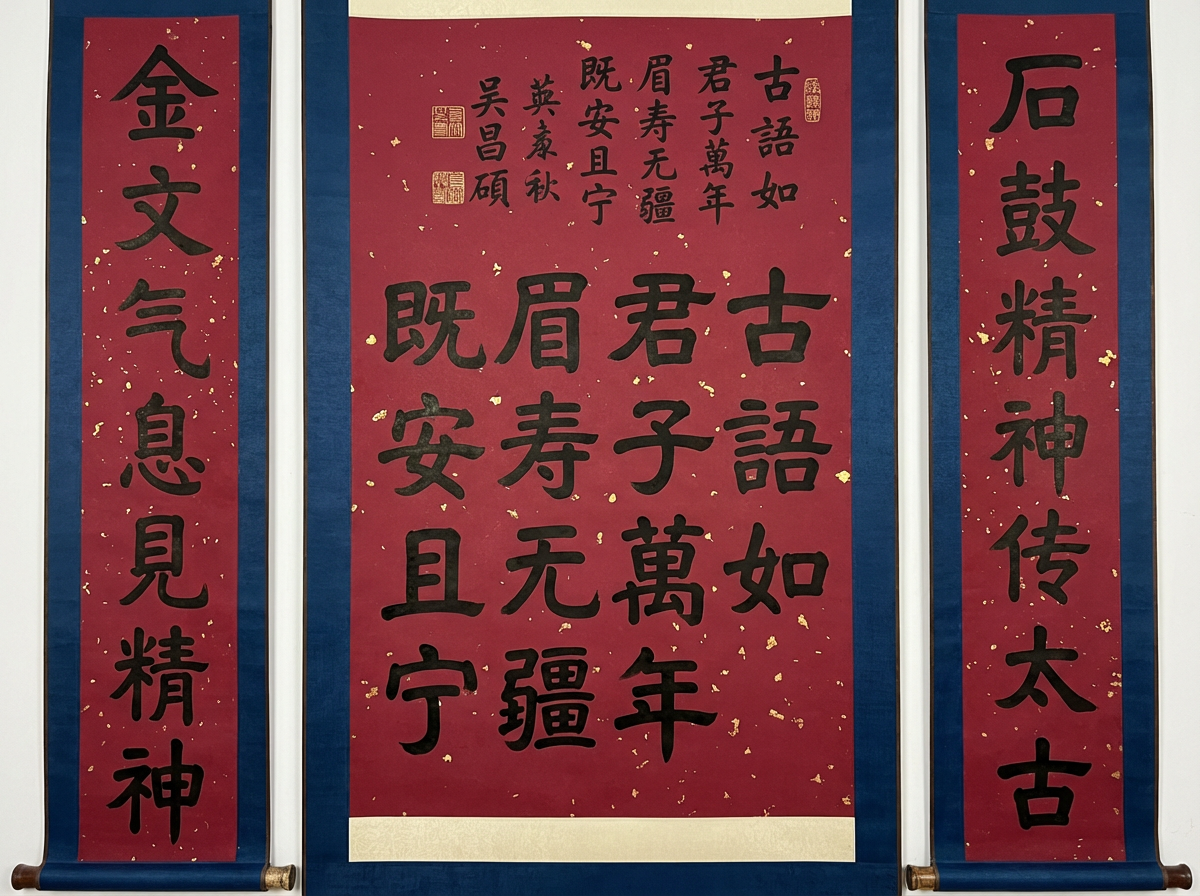 石鼓精神传太古
古語如
君子萬年
眉寿无疆
既安且宁
英豪秋
吴昌碩
古語如
君子萬年
眉寿无疆
既安且宁
金文气息見精神